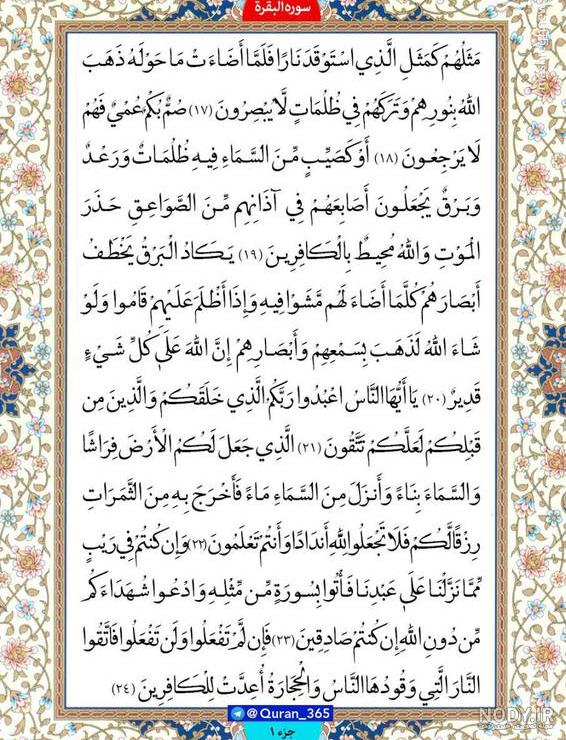 سوره البقرة
مَثَلُهُمْ كَمَثَلِ الَّذِي اسْتَوْقَدَ نَارًا فَلَمَّا أَضَاءَتْ مَا حَوْلَهُ ذَهَبَ
اللَّهُ بِنُورِهِمْ وَتَرَكَهُمْ فِي ظُلُمَاتٍ لَّا يُبْصِرُونَ (۱۷) صُمٌّ بُكْمٌ عُمْيٌ فَهُمْ
لَا يَرْجِعُونَ (۱۸) أَوْ كَصَيِّبٍ مِّنَ السَّمَاءِ فِيهِ ظُلُمَاتٌ وَرَعْدٌ
وَبَرْقٌ يَجْعَلُونَ أَصَابِعَهُمْ فِي آذَانِهِم مِّنَ الصَّوَاعِقِ حَذَرَ
الْمَوْتِ وَاللَّهُ مُحِيطٌ بِالْكَافِرِينَ (۱۹) يَكَادُ الْبَرْقُ يَخْطَفُ
أَبْصَارَهُمْ كُلَّمَا أَضَاءَ لَهُم مَّشَوْا فِيهِ وَإِذَا أَظْلَمَ عَلَيْهِمْ قَامُوا وَلَوْ
شَاءَ اللَّهُ لَذَهَبَ بِسَمْعِهِمْ وَأَبْصَارِهِمْ إِنَّ اللَّهَ عَلَىٰ كُلِّ شَيْءٍ
قَدِيرٌ (۲۰) يَا أَيُّهَا النَّاسُ اعْبُدُوا رَبَّكُمُ الَّذِي خَلَقَكُمْ وَالَّذِينَ مِن
قَبْلِكُمْ لَعَلَّكُمْ تَتَّقُونَ (۲۱) الَّذِي جَعَلَ لَكُمُ الْأَرْضَ فِرَاشًا
وَالسَّمَاءَ بِنَاءً وَأَنزَلَ مِنَ السَّمَاءِ مَاءً فَأَخْرَجَ بِهِ مِنَ الثَّمَرَاتِ
رِزْقًا لَّكُمْ فَلَا تَجْعَلُوا لِلَّهِ أَندَادًا وَأَنتُمْ تَعْلَمُونَ (۲۲) وَإِن كُنتُمْ فِي رَيْبٍ
مِّمَّا نَزَّلْنَا عَلَىٰ عَبْدِنَا فَأْتُوا بِسُورَةٍ مِّن مِّثْلِهِ وَادْعُوا شُهَدَاءَكُم
مِّن دُونِ اللَّهِ إِن كُنتُمْ صَادِقِينَ (۲۳) فَإِن لَّمْ تَفْعَلُوا وَلَن تَفْعَلُوا فَاتَّقُوا
النَّارَ الَّتِي وَقُودُهَا النَّاسُ وَالْحِجَارَةُ أُعِدَّتْ لِلْكَافِرِينَ (۲۴)
@Quran_365
جزء ۱
NODY.IR